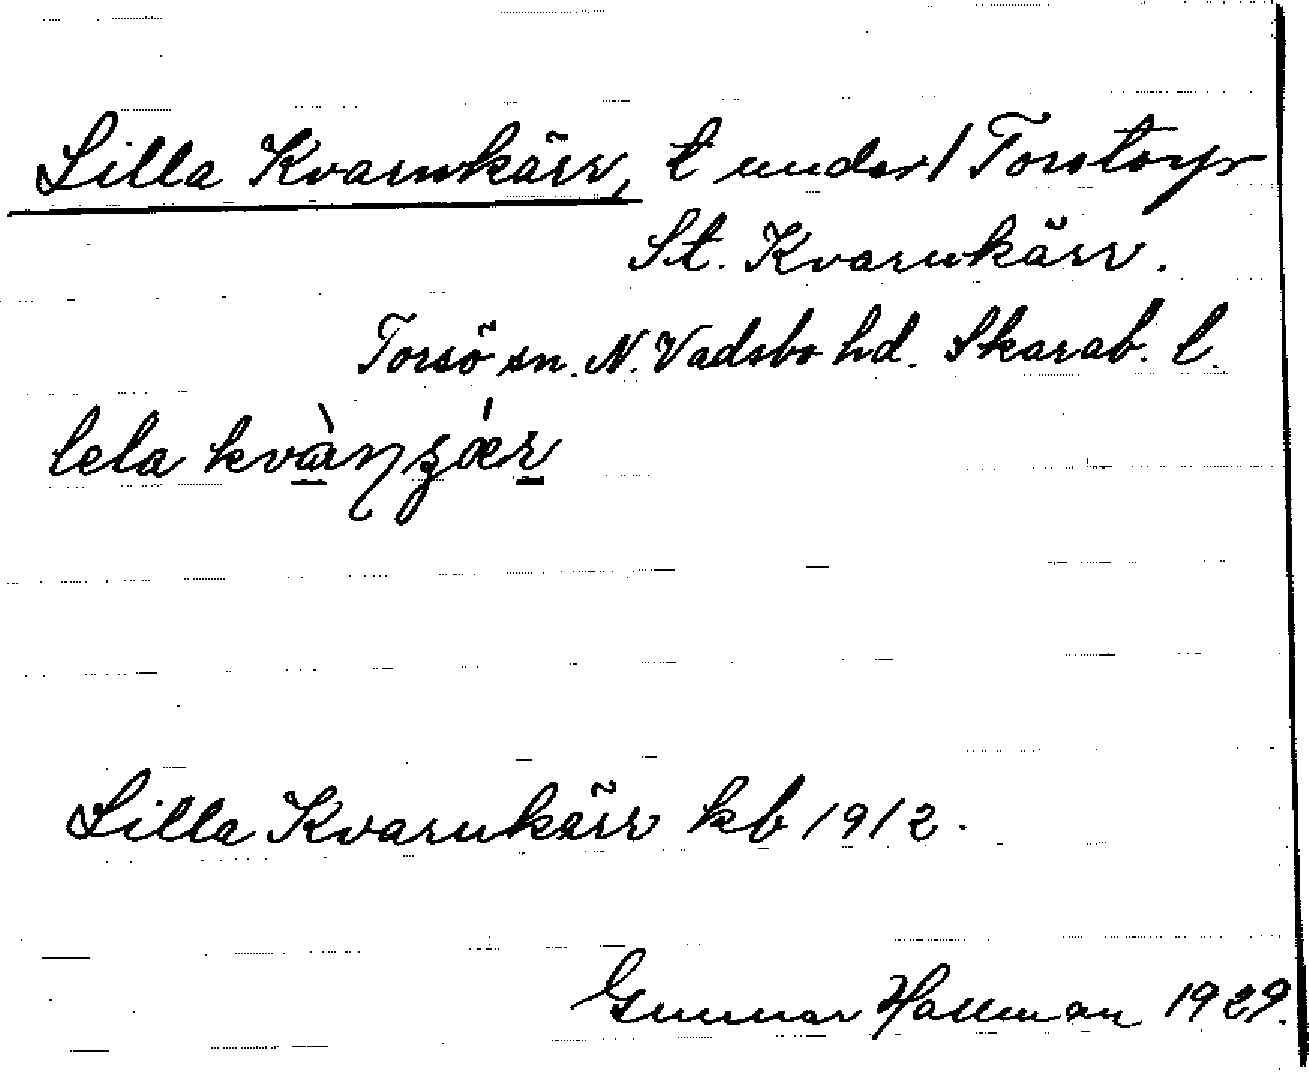 Lilla Kvarnkärr, t under 1 Torstorp
St. Kvarnkärr.
Torsö sn. N. Vadsbo hd. Skarab. l.
lela
Lilla Kvarnkärr kb 1912.
Gunnar Hallman 1929.